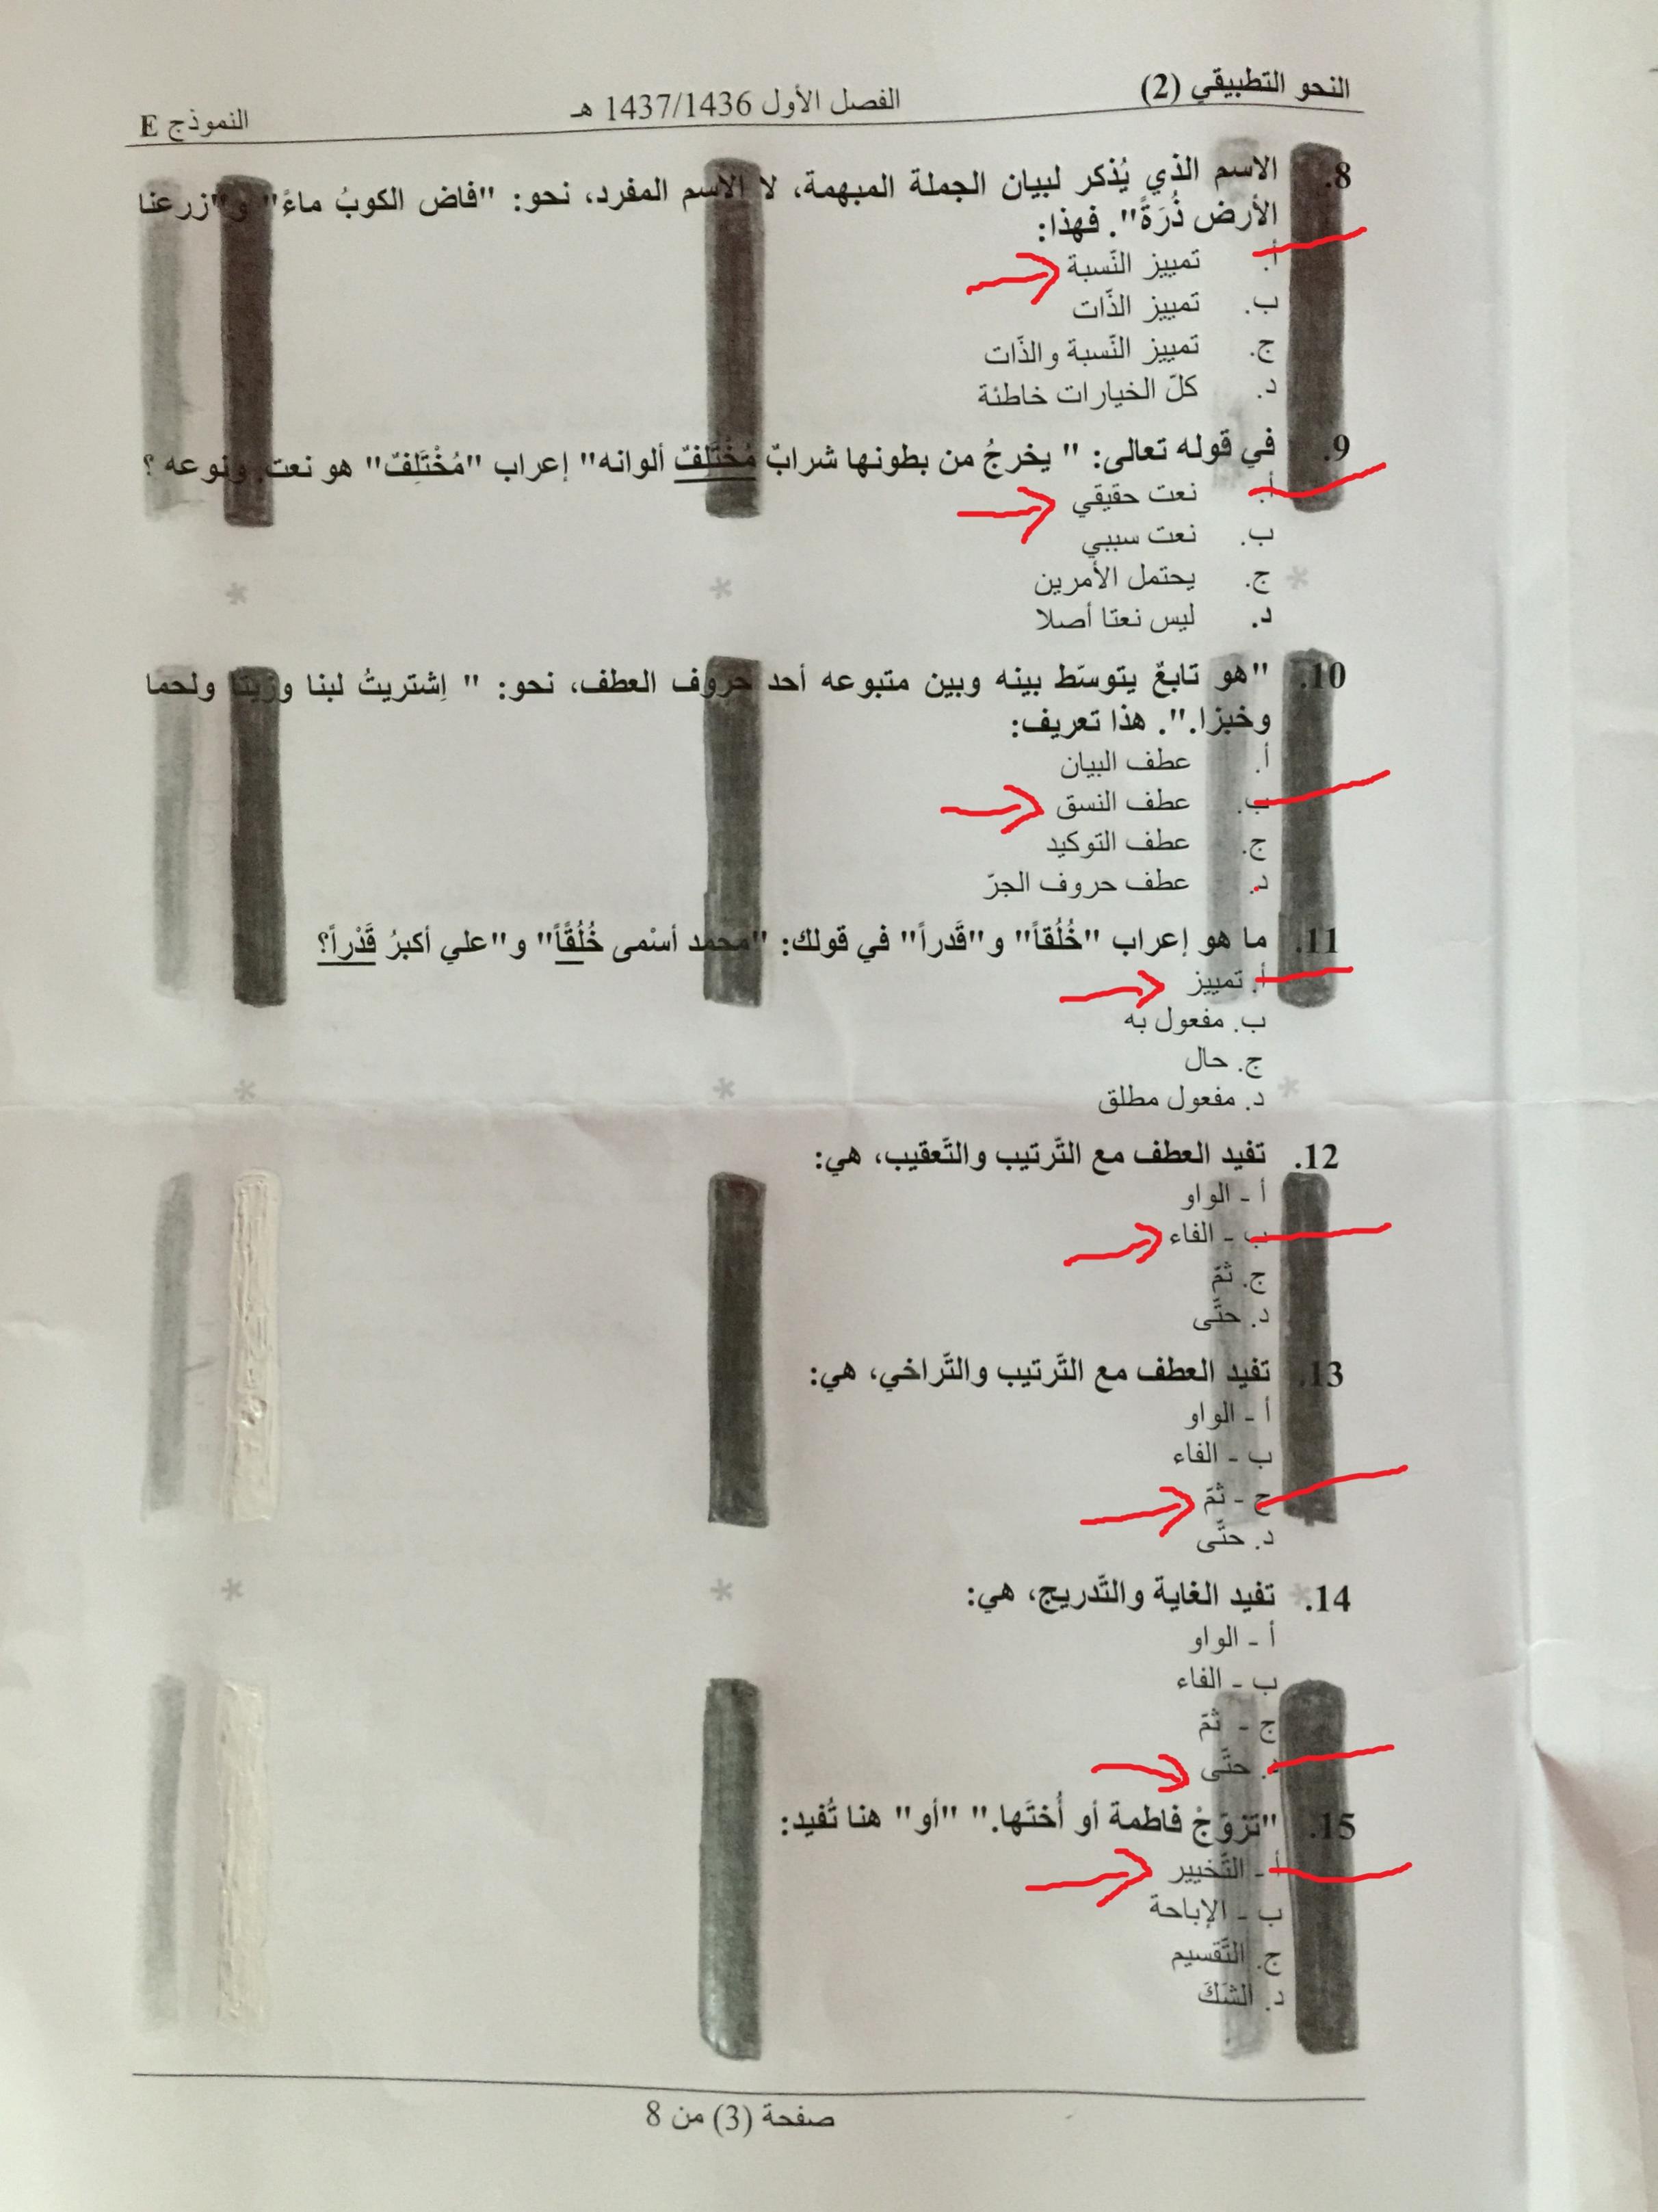 النحو التطبيقي (2) الفصل الأول 1437/1436 هـ النموذج E
8. الاسم الذي يُذكر لبيان الجملة المبهمة، لا الاسم المفرد، نحو: "فاض الكوبُ ماءً" و"زرعنا
الأرض ذُرَةً". فهذا:
أ. تمييز النّسبة
ب. تمييز الذّات
ج. تمييز النّسبة والذّات
د. كلّ الخيارات خاطئة
9. في قوله تعالى: " يخرجُ من بطونها شرابٌ مُخْتَلِفٌ ألوانه" إعراب "مُخْتَلِفٌ" هو نعت. ونوعه ؟
أ. نعت حقيقي
ب. نعت سببي
ج. يحتمل الأمرين
د. ليس نعتا أصلا
10. "هو تابعٌ يتوسّط بينه وبين متبوعه أحد حروف العطف، نحو: " اِشتريتُ لبنا وزيتا ولحما
وخبزا.". هذا تعريف:
أ. عطف البيان
ب. عطف النسق
ج. عطف التوكيد
د. عطف حروف الجرّ
11. ما هو إعراب "خُلُقاً" و"قَدراً" في قولك: "محمد أسْمى خُلُقًاً" و"علي أكبرُ قَدْراً؟
أ. تمييز
ب. مفعول به
ج. حال
د. مفعول مطلق
12. تفيد العطف مع التّرتيب والتّعقيب، هي:
أ - الواو
ب - الفاء
ج. ثمّ
د. حتّى
13. تفيد العطف مع التّرتيب والتّراخي، هي:
أ - الواو
ب - الفاء
ج - ثمّ
د. حتّى
14. تفيد الغاية والتّدريج، هي:
أ - الواو
ب - الفاء
ج - ثمّ
د. حتّى
15. "تزوّجْ فاطمة أو أُختَها." "أو" هنا تُفيد:
أ - التّخيير
ب - الإباحة
ج. التّقسيم
د. الشكّ
صفحة (3) من 8